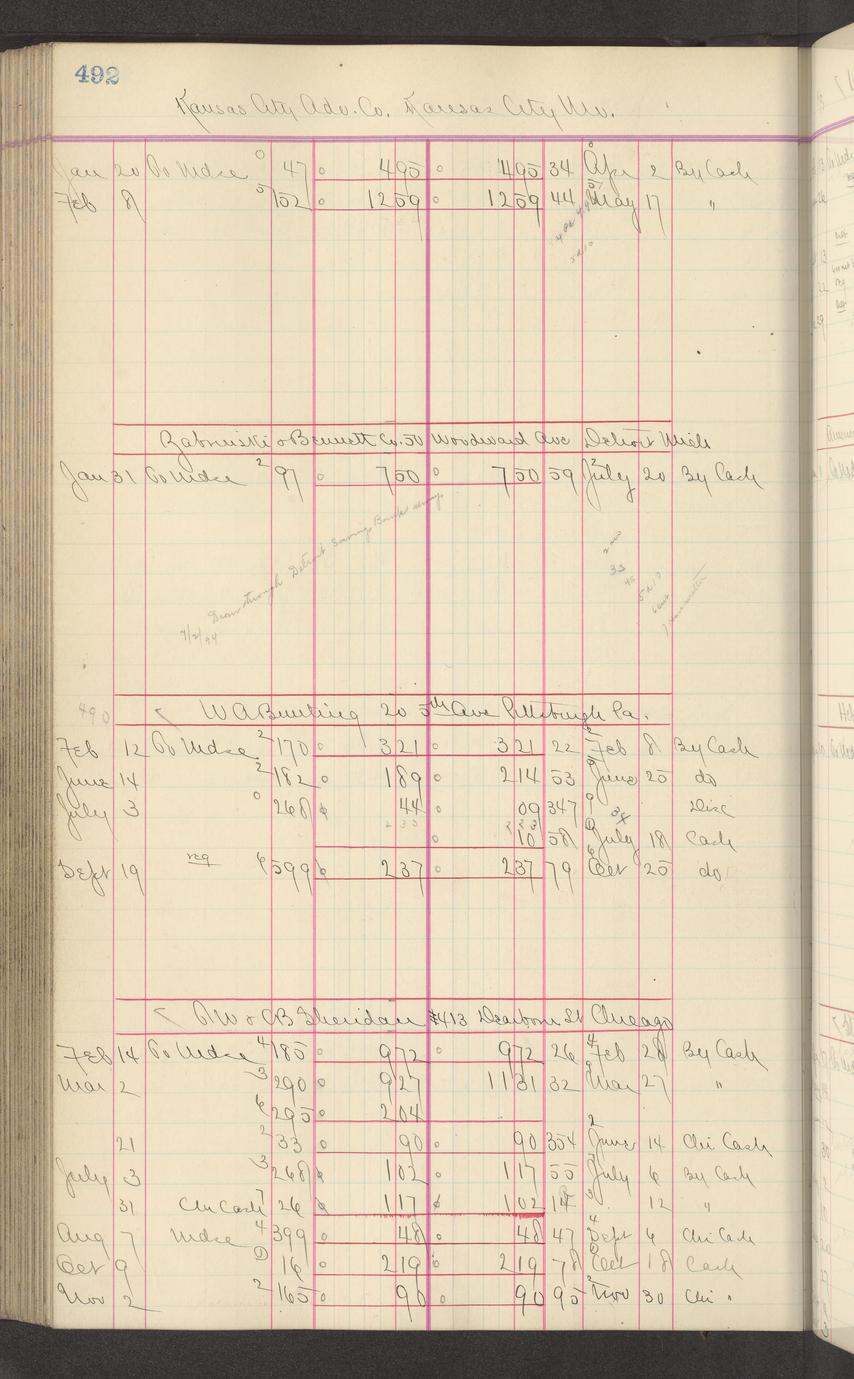 492
Kansas City Adv. Co. Kansas City Mo.
Jan 20 To Mdse 0 47 0 495 0 495 34 0 Apr 2 By Cash
Feb 8 5 152 0 1259 0 1259 44 5 May 17 "
5 & 10
& Bennett Co. 50 Woodward Ave Detroit Mich
Jan 31 To Mdse 2 97 0 750 0 750 59 2 July 20 By Cash
Draw through Detroit Savings Bank always
33
7/2/94
490
W A Bunting 20 5th Ave Pittsburgh Pa.
Feb 12 To Mdse 2 170 0 321 0 321 22 2 Feb 8 By Cash
June 14 2 182 0 189 0 214 53 9 June 25 do
July 3 0 268 44 0 09 347 9 Disc
233 223
0 10 58 July 18 Cash
Sept 19 req 6 599 237 0 237 79 6 Oct 25 do
W & CB Sheridan #413 Dearborn St Chicago
Feb 14 To Mdse 4 185 0 972 0 972 26 4 Feb 28 By Cash
Mar 2 3 290 0 927 1131 32 9 Mar 27 "
6 295 0 204
21 2 33 0 90 0 90 354 2 June 14 Chi Cash
July 3 3 268 102 0 117 55 July 6 By Cash
31 Chi Cash 7 26 117 102 14 3 12 "
Aug 7 Mdse 4 399 0 48 0 48 47 4 Sept 6 Chi Cash
Oct 9 16 0 219 0 219 78 Oct 18 Cash
Nov 2 2 165 0 90 0 90 95 2 Nov 30 Chi "